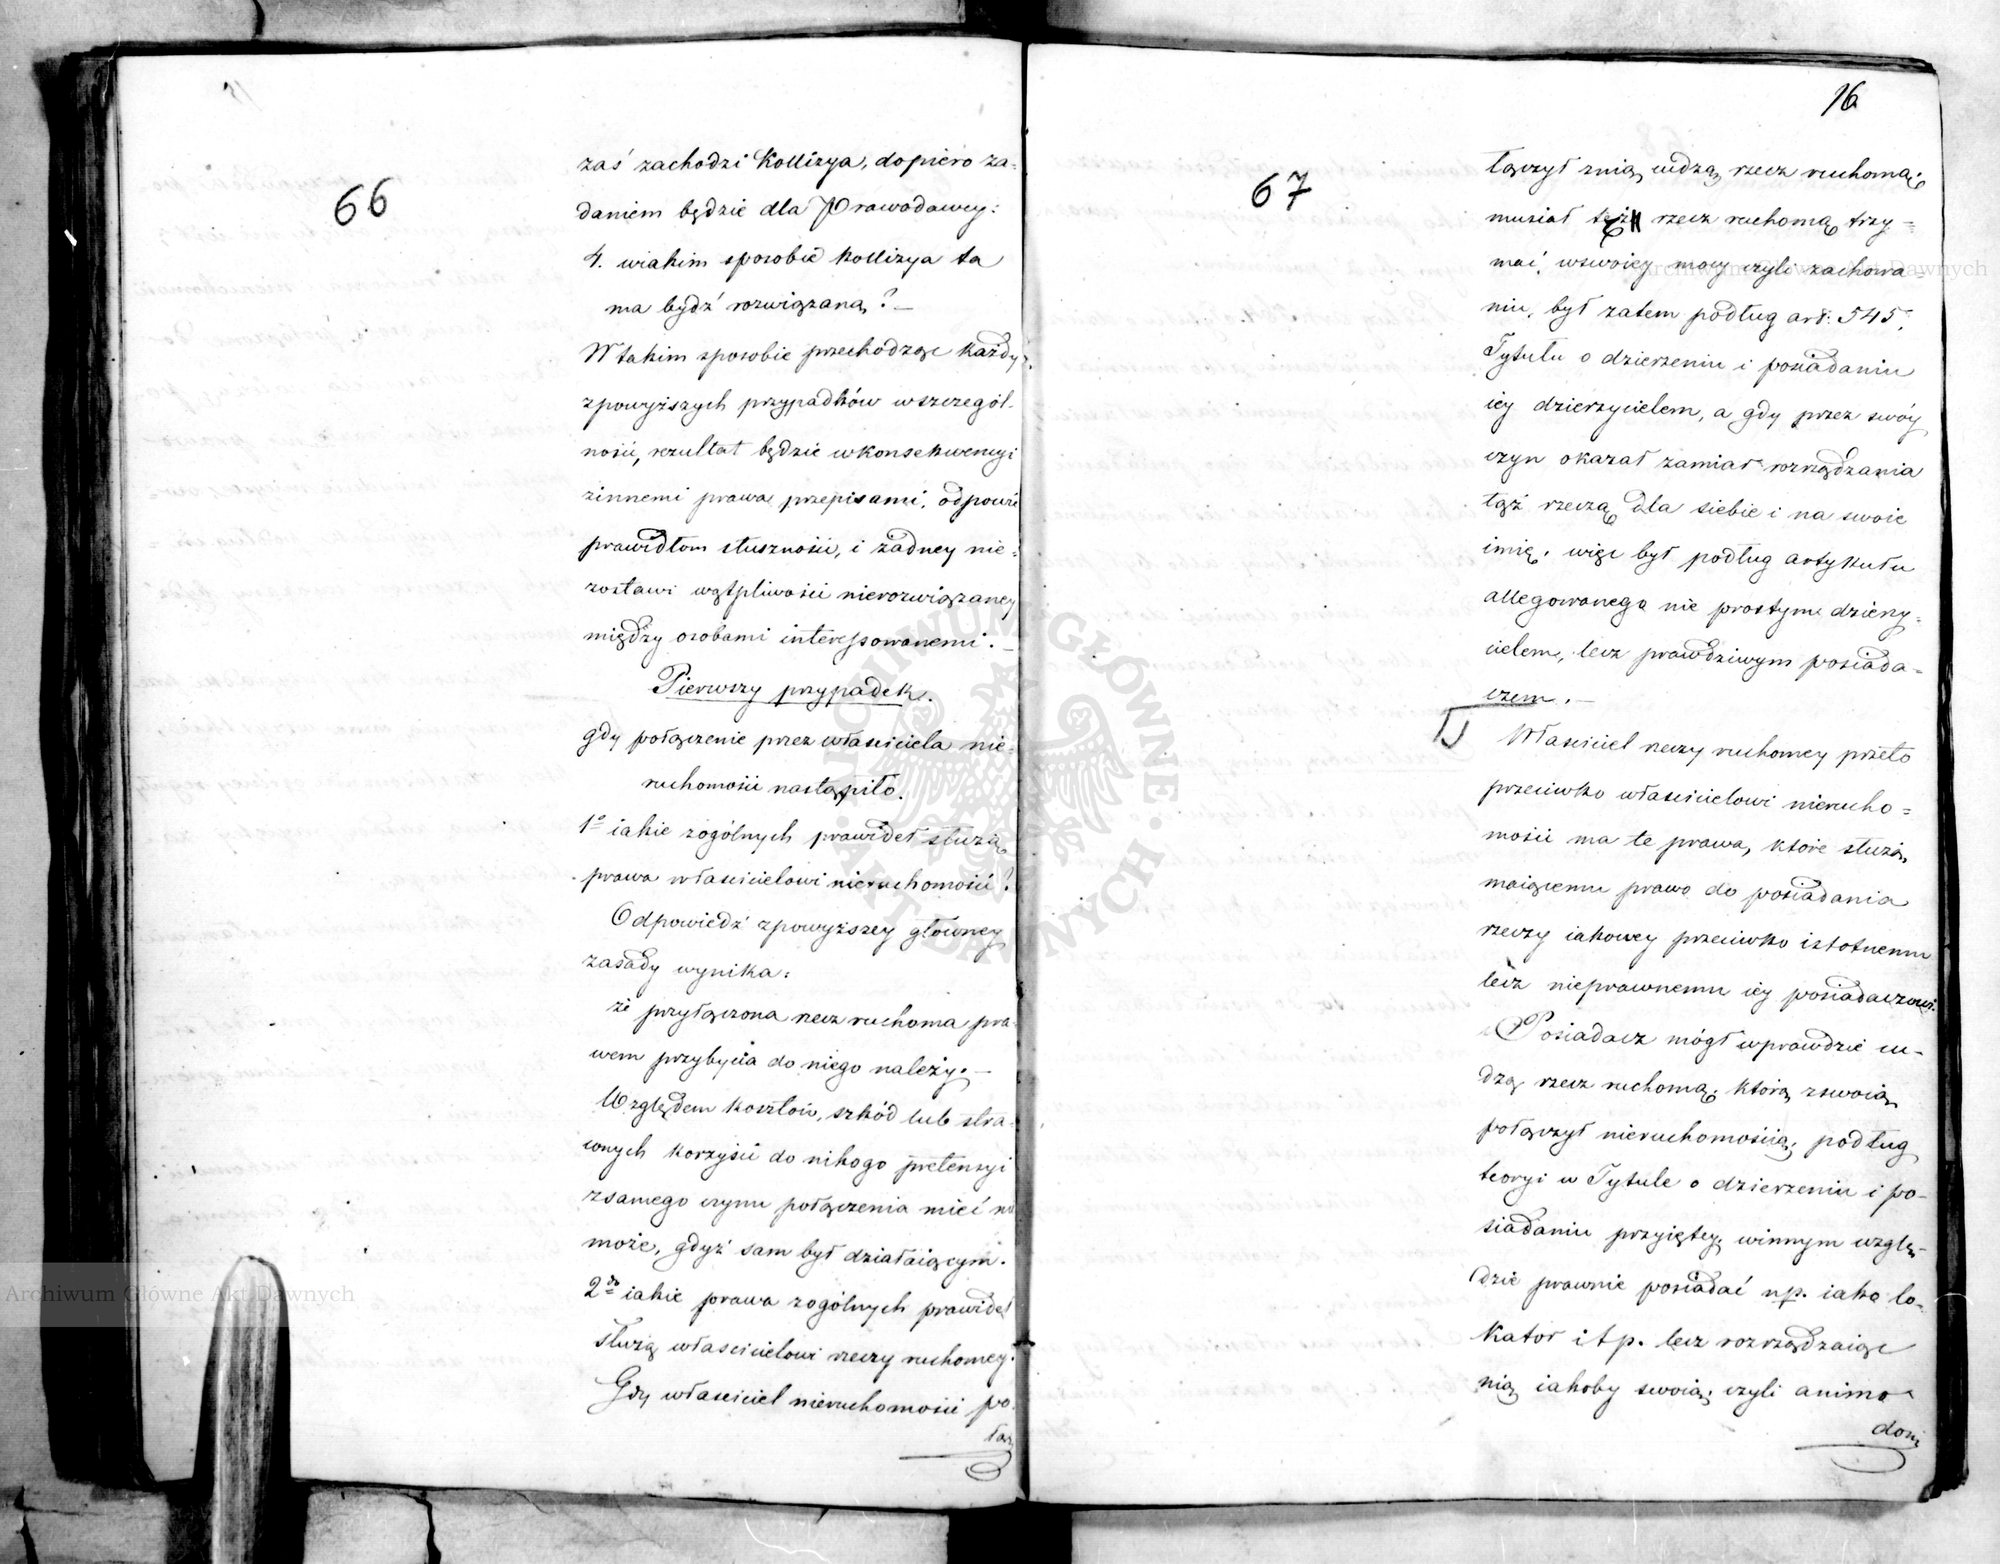 66
zaś zachodzi kollizya, dopiero za-
daniem będzie dla Prawodawcy:
4. wiakim sposobie kollizya ta
ma bydź rozwiązaną? —
Wtakim sposobie przechodząc każdy
zpowyższych przypadków wszczegól-
ności, rezultat będzie wkonsekwencyi
zinnemi prawa przepisami, odpowie
prawidłom słuszności, i żadney nie-
zostawi wątpliwości nierozwiązaney
między osobami interessowanemi. —
Pierwszy przypadek.
gdy połączenie przez właściciela nie-
ruchomości nastąpiło.
1º iakie zogólnych prawideł służą
prawa właścicielowi nieruchomości?
Odpowiedź zpowyższey główney
zasady wynika:
że przyłączona rzecz ruchoma pra-
wem przybycia do niego należy. —
Względem kosztów, szkód lub stra-
conych korzyści do nikogo pretensyi
zsamego czynu połączenia mieć nie
może, gdyż sam był działaiącym.
2do iakie prawa zogólnych prawideł
służą właścicielowi rzeczy ruchomey.
Gdy właściciel nieruchomości po-
łą
16
67
łączył znią cudzą rzecz ruchomą;
musiał tęż rzecz ruchomą trzy-
mać, wswoiey mocy czyli zachowa-
niu, był zatem podług art: 545.
Tytułu o dzierzeniu i posiadaniu
iey dzierzycielem, a gdy przez swóy
czyn okazał zamiar rozrządzania
tąż rzeczą dla siebie i na swoie
imię, więc był podług artykułu
allegowanego nie prostym dzierzy-
cielem, lecz prawdziwym posiada-
czem. —
Właściciel rzeczy ruchomey przeto
przeciwko właścicielowi nierucho-
mości ma te prawa, które służą
maiącemu prawo do posiadania
rzeczy iakowey przeciwko istotnemu
lecz nieprawnemu iey posiadaczowi.
Posiadacz mógł wprawdzie cu-
dzą rzecz ruchomą, którą zswoią
połączył nieruchomością, podług
teoryi w Tytule o dzierzeniu i po-
siadaniu przyiętey, winnym wzglę-
dzie prawnie posiadać np. iako lo-
kator i t p. lecz rozrządzaiąc
nią iakoby swoią, czyli animo
domi
Archiwum Główne Akt Dawnych
Archiwum Główne Akt Dawnych
ARCHIWUM GŁÓWNE AKT DAWNYCH